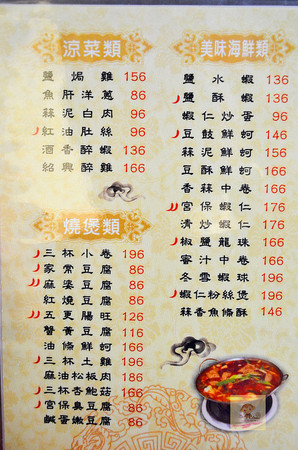 涼菜類
鹽焗雞 156
魚肝洋蔥 86
蒜泥白肉 96
紅油肚絲 96
酒香醉蝦 136
紹興醉雞 166
燒煲類
三杯小卷 196
家常豆腐 86
麻婆豆腐 86
紅燒豆腐 86
五更腸旺 126
蟹黃豆腐 116
油條鮮蚵 166
三杯土雞 196
麻油松板肉 186
三杯杏鮑菇 166
宮保臭豆腐 86
鹹蛋嫩豆腐 86
美味海鮮類
鹽水蝦 136
鹽酥蝦 136
蝦仁炒蛋 96
豆鼓鮮蚵 146
蒜泥鮮蚵 156
豆酥鮮蚵 166
香蒜中卷 166
宮保蝦仁 176
清炒蝦仁 176
椒鹽龍珠 166
蜜汁中卷 166
冬雪蝦球 196
蝦仁粉絲煲 196
蒜香魚條酥 146